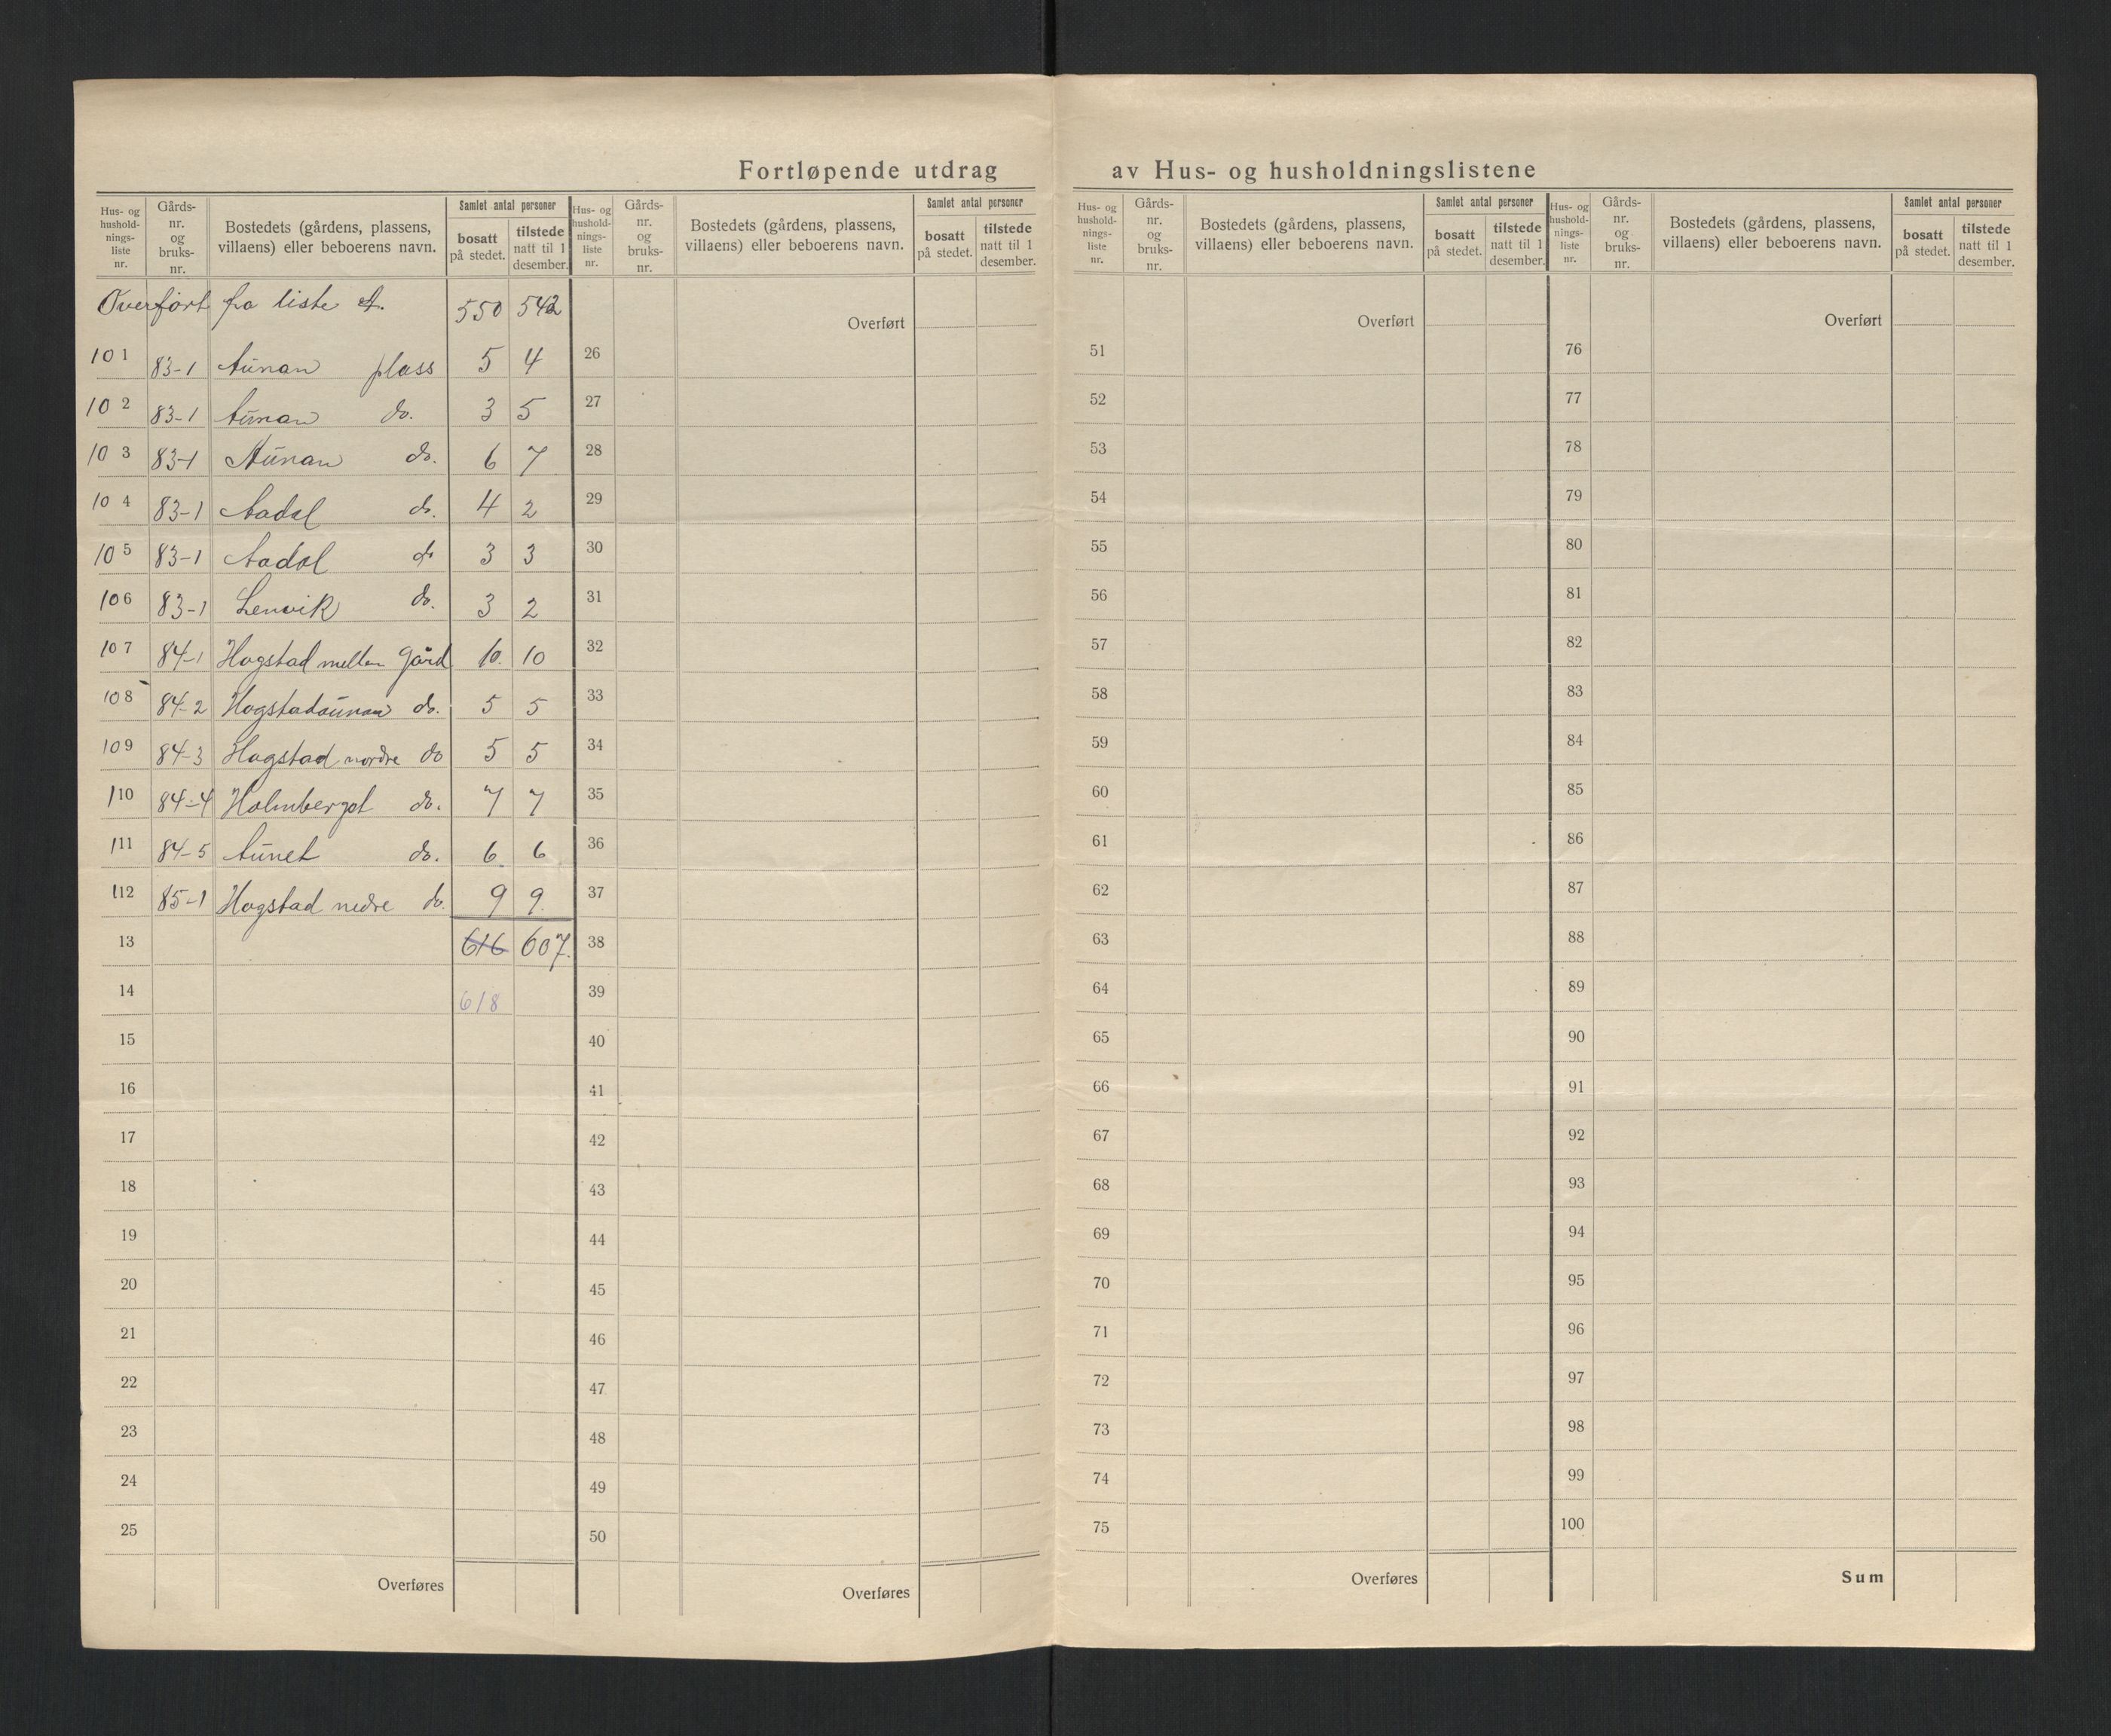 Fortløpende utdrag av Hus- og husholdningslistene
Hus- og hushold-nings-liste nr. | Gårds-nr. og bruks-nr. | Bostedets (gårdens, plassens, villaens) eller beboerens navn. | Samlet antal personer | bosatt på stedet. | tilstede natt til 1 desember.
Overført fra liste A. 550 542
101 83-1 Aunan plass 5 4
102 83-1 Aunan do. 3 5
103 83-1 Aunan do. 6 7
104 83-1 Aadal do. 4 2
105 83-1 Aadal do 3 3
106 83-1 Lenvik do. 3 2
107 84-1 Hogstad mellan Gård 10. 10
108 84-2 Hogstadaunan do. 5 5
109 84-3 Hogstad nordre do 5 5
110 84-4 Holmberget do. 7 7
111 84-5 Aunet do. 6. 6
112 85-1 Hogstad nedre do. 9 9.
13 616 607.
14 618
15
16
17
18
19
20
21
22
23
24
25
Overføres
Hus- og hushold-nings-liste nr. | Gårds-nr. og bruks-nr. | Bostedets (gårdens, plassens, villaens) eller beboerens navn. | Samlet antal personer | bosatt på stedet. | tilstede natt til 1 desember.
Overført
26
27
28
29
30
31
32
33
34
35
36
37
38
39
40
41
42
43
44
45
46
47
48
49
50
Overføres
Hus- og hushold-nings-liste nr. | Gårds-nr. og bruks-nr. | Bostedets (gårdens, plassens, villaens) eller beboerens navn. | Samlet antal personer | bosatt på stedet. | tilstede natt til 1 desember.
Overført
51
52
53
54
55
56
57
58
59
60
61
62
63
64
65
66
67
68
69
70
71
72
73
74
75
Overføres
Hus- og hushold-nings-liste nr. | Gårds-nr. og bruks-nr. | Bostedets (gårdens, plassens, villaens) eller beboerens navn. | Samlet antal personer | bosatt på stedet. | tilstede natt til 1 desember.
Overført
76
77
78
79
80
81
82
83
84
85
86
87
88
89
90
91
92
93
94
95
96
97
98
99
100
Sum